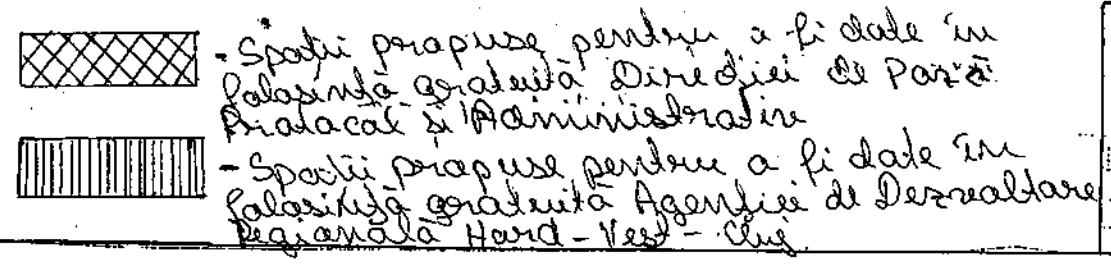 - Spații propuse pentru a fi date în
folosință gratuită Direcției de Pază
Protocol și Administrativ
- Spații propuse pentru a fi date în
folosință gratuită Agenției de Dezvoltare
Regională Nord-Vest - Cluj